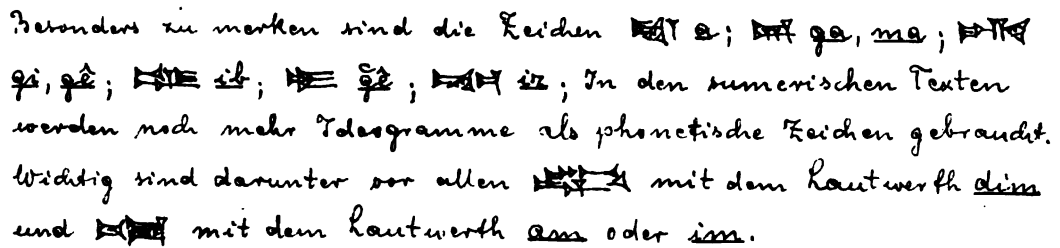 Besonders zu merken sind die Zeichen a; ga, ma;
gi, gê; ib; g̃ê; iz; In den sumerischen Texten
werden noch mehr Ideogramme als phonetische Zeichen gebraucht.
Wichtig sind darunter vor allen mit dem Lautwerth dim
und mit dem Lautwerth am oder im.